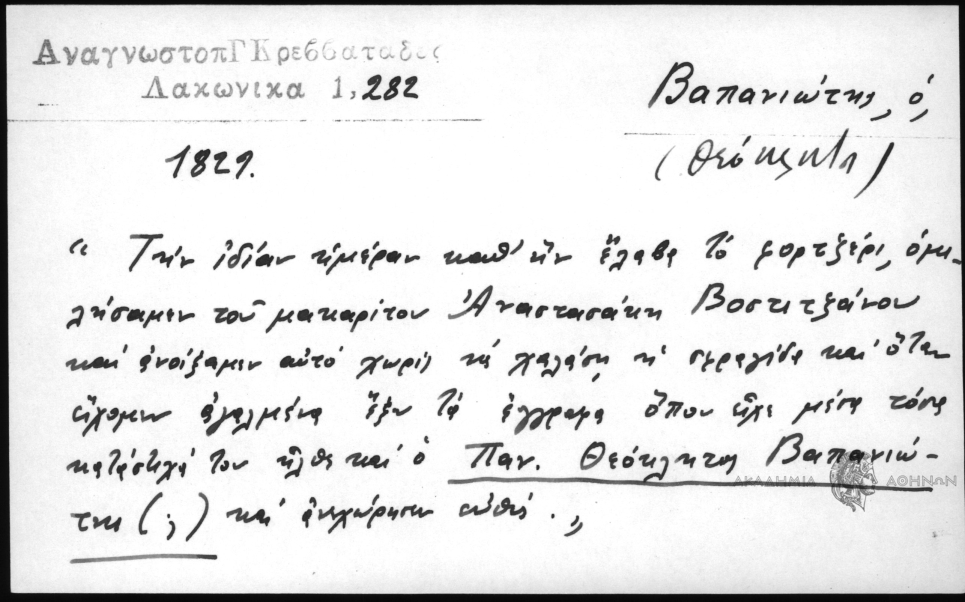 ΑναγνωστοπΓΚρεββαταδες
Λακωνικα 1,282
Βαπανιώτης, ὁ,
1829.
(Θεόκλητο)
“ Τὴν ἰδίαν ἡμέραν καθ' ἣν ἔλαβα τὸ φορτζέρι, ὁμι-
λήσαμεν τοῦ μακαρίτου Ἀναστασάκη Βοστιτζάνου
καὶ ἀνοίξαμεν αὐτὸ χωρὶς νὰ χαλάσῃ ἡ σφραγίδα καὶ ὅταν
εἴχομεν βγαλμένα ἔξω τὰ ἔγγραφα ὅπου εἶχε μέσα τόσα
κατάστιχά του ἦλθε καὶ ὁ Παν. Θεόκλητος Βαπανιώ-
της (;) καὶ ἀνεχώρησεν εὐθύς. „
ΑΚΑΔΗΜΙΑ ΑΘΗΝΩΝ